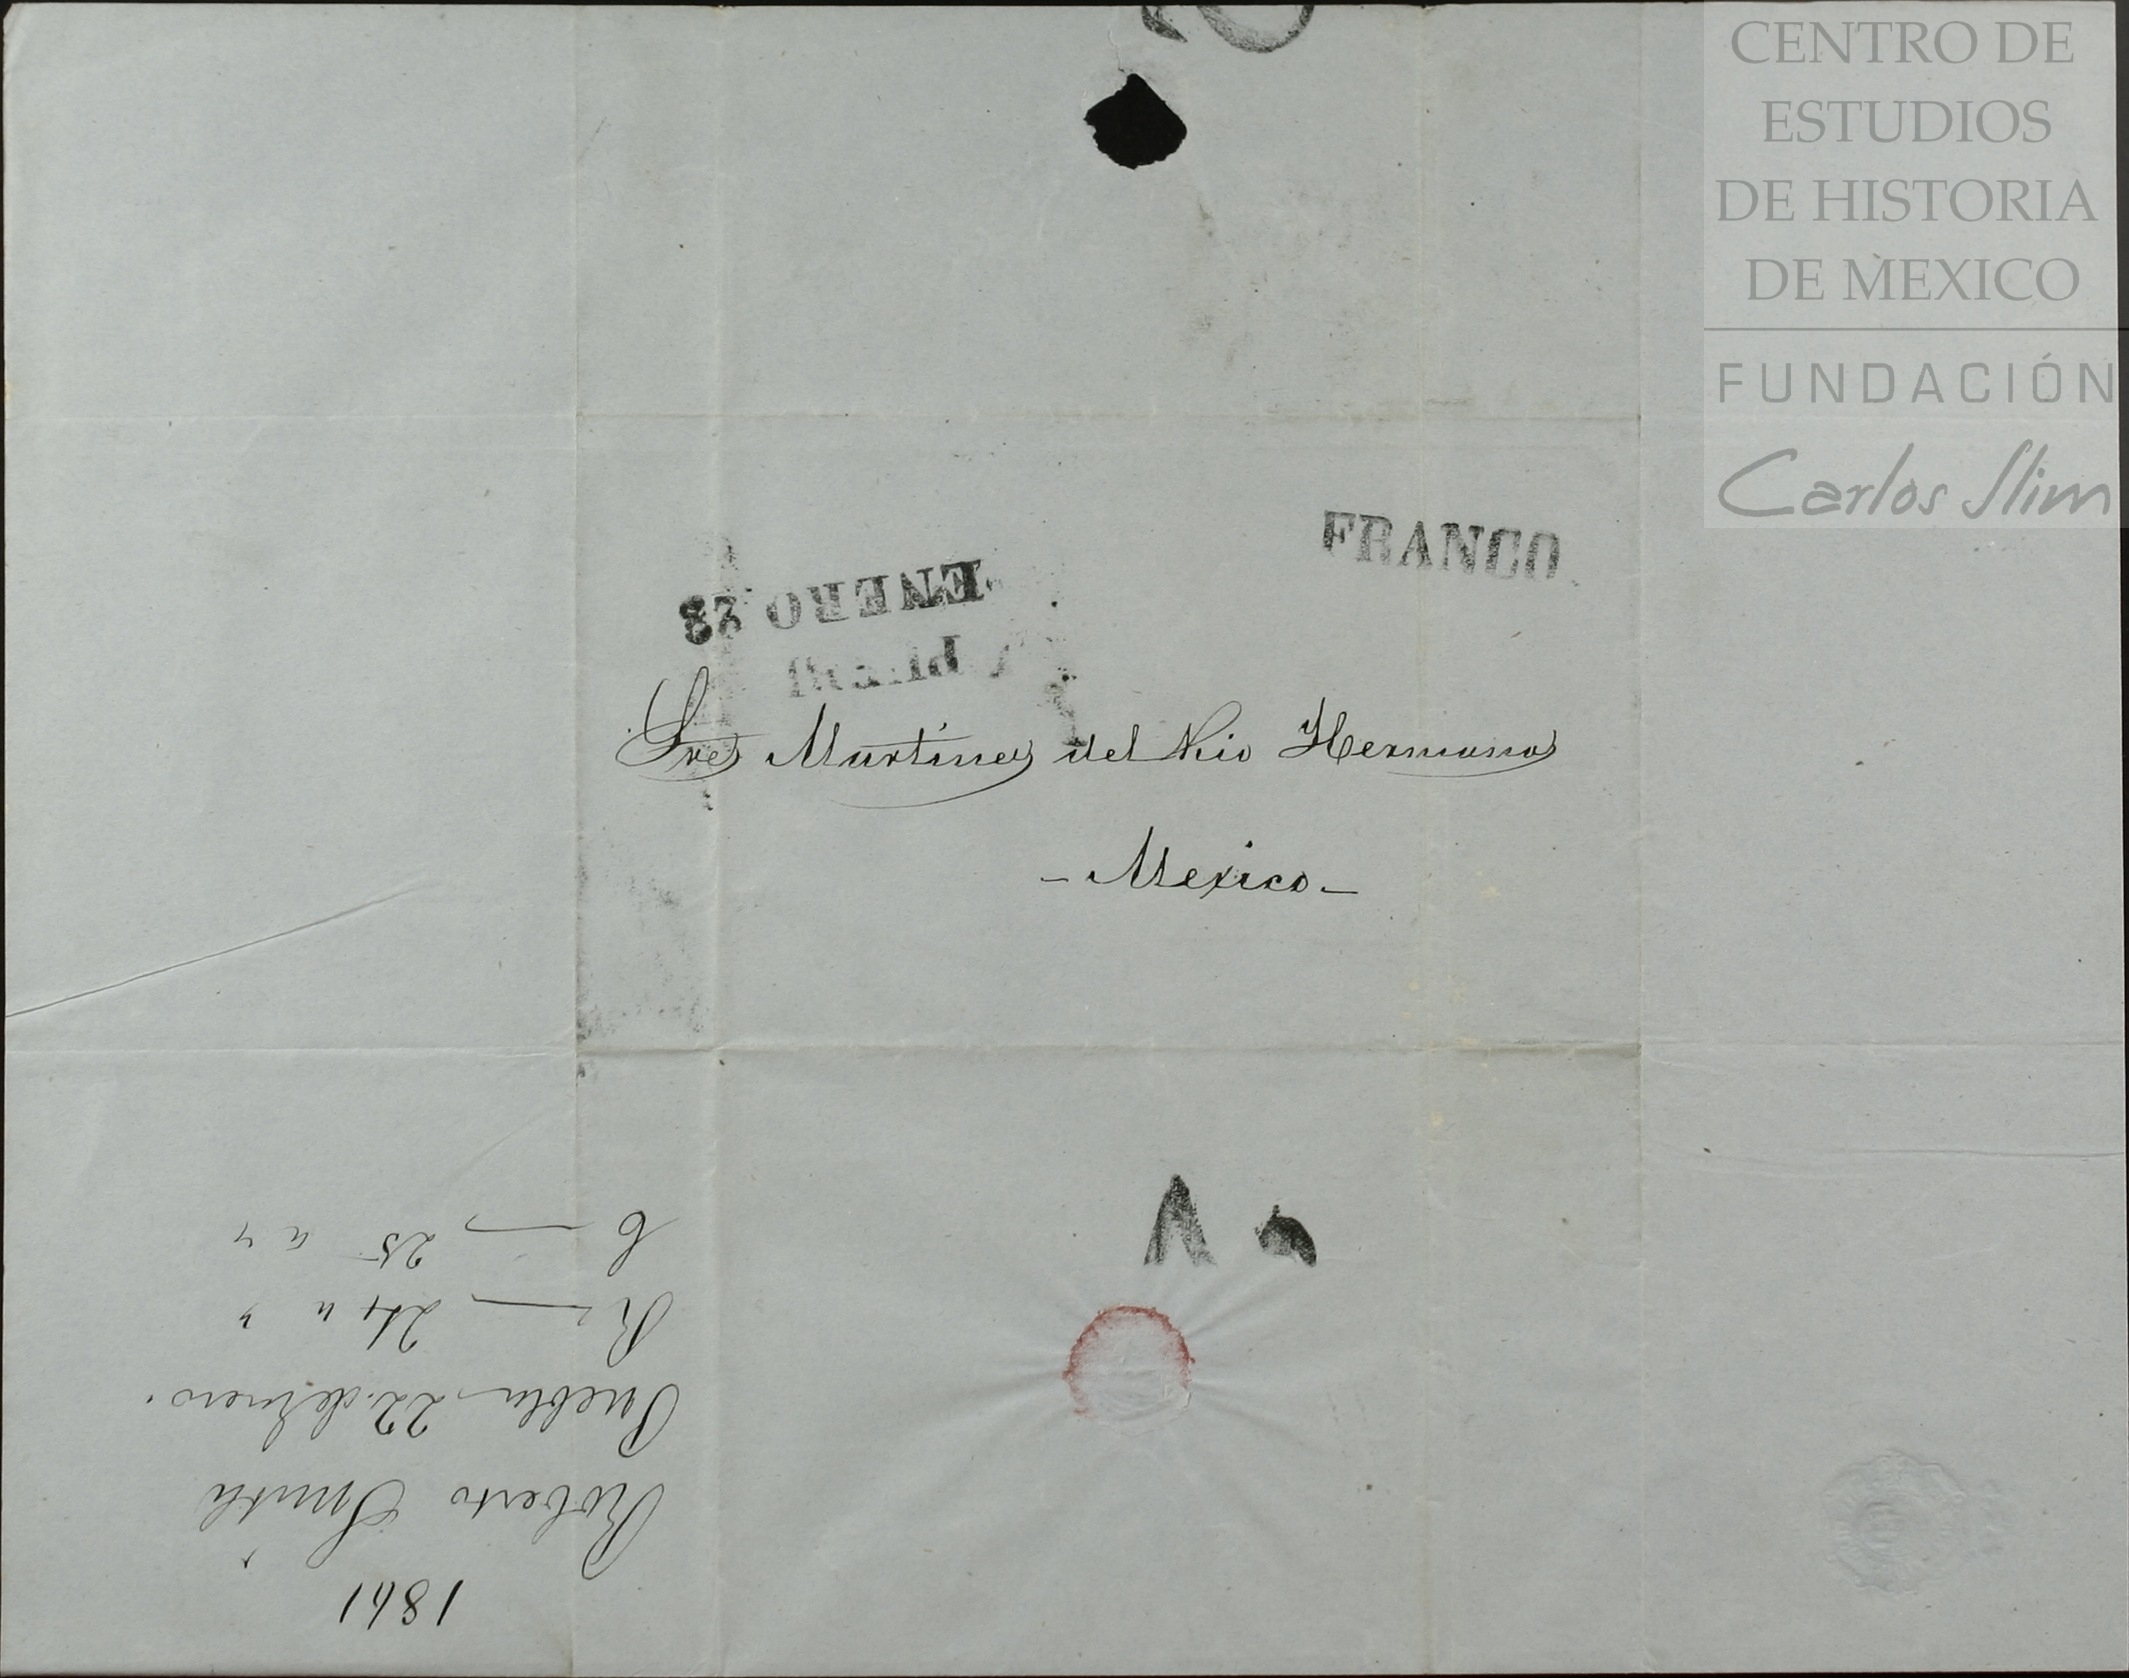 CENTRO DE
ESTUDIOS
DE HISTORIA
DE MEXICO
FUNDACIÓN
Carlos Slim
FRANCO
ENERO 23
Sres Martinez del Rio Hermanos
- Mexico -
A
1861
Roberto Smith
Puebla 22 de Enero.
R 24 " "
C 25 " "